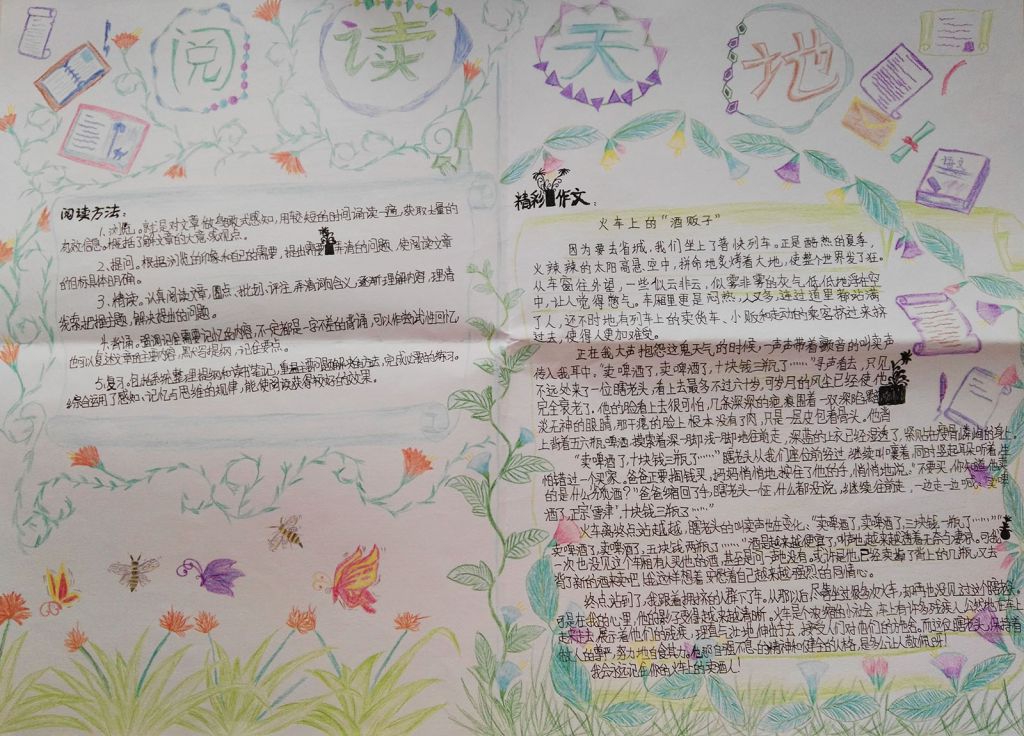 阅读天地
阅读方法：
1、浏览。就是对文章做鸟瞰式感知，用较短的时间诵读一遍，获取大量的
有效信息。概括了解文章的大意或观点。
2、提问。根据浏览的印象和自己的需要，提出需要弄清的问题，使阅读文章
的目标具体的明确。
3、精读。认真阅读文章，圈点、批划、评注，弄清词句含义，逐渐理解内容，理清
线索，把握主题，解决提出的问题。
4、背诵。强调记住需要记忆的内容，不一定都是一字不差的背诵，可以作尝试性回忆
的可以复述文章的主要内容，默写提纲，记住要点。
5、复习。包括系统整理提纲和读书笔记，
综合运用了感知、记忆与思维的规律，能使阅读获得较好的效果。
语文
精彩作文：
火车上的“酒贩子”
因为要去省城，我们坐上了普快列车。正是酷热的夏季，
火辣辣的太阳高悬空中，拼命地炙烤着大地，使整个世界发了狂。
从车窗往外望，一些似云非云，似雾非雾的灰气低低地浮在空
中，让人觉得憋气。车厢里更是闷热，人又多，连过道里都站满
了人，还不时地有列车上的卖货车、小贩和走动的乘客挤过来挤
过去，使得人更加难受。
正在我大声抱怨这鬼天气的时候，一声声带着颤音的叫卖声
传入我耳中，“卖啤酒了，卖啤酒了，十块钱三瓶了……”寻声看去，只见
不远处来了一位瞎老头，看上去最多不过六十岁，可岁月的风尘已经使他
完全衰老了。他的脸看上去很可怕，几条深深的疤痕围着一双深陷
炎无神的眼睛，那干瘪的脸上根本没有了肉，只是一层皮包着骨头。他肩
上背着五六瓶啤酒，摸索着深一脚浅一脚地往前走，深蓝的上衣已经湿透了，紧贴在瘦骨嶙峋的身上。
“卖啤酒了，十块钱三瓶了……”瞎老头从我们座位前经过，继续叫嚷着，同时竖起耳朵听着，生
怕错过一个买家。爸爸正要掏钱买，妈妈悄悄地按住了他的手，悄悄地说：“不要买，你知道他卖
的是什么劣质酒？”爸爸缩回了手，瞎老头一怔，什么都没说，继续往前走，一边走一边喊：“卖啤
酒了，正宗‘雪津’，十块钱三瓶了……”
火车离终点站越近，瞎老头的叫卖声也在变化：“卖啤酒了，卖啤酒了，三块钱一瓶了……”“
卖啤酒了，卖啤酒了，五块钱两瓶了……”酒是越来越便宜了，叫声也越来越透着无奈与凄凉。可我
一次也没见这个车厢有人买他的酒，甚至是问一声也没有。或许是他已经卖掉了背上的几瓶，又去
背了新的酒来卖吧！我这样想着来慰藉自己越来越强烈的同情心。
终点站到了，我跟着拥挤的人群下车。从那以后，尽管坐过很多次火车，却再也没见过这个瞎老头。
可是在我的心里，他的影子变得越来越清晰。火车是个浓缩的小社会，车上有许多残疾人公然地在车上
走来走去，展示着他们的残疾，理直气壮地伸出手去，接受人们对他们的施舍。而这位瞎老头，保持着
做人的尊严，努力地自食其力。他那自强不息的精神和健全的人格，是多么让人敬佩呀！
我会永远记住你的，火车上的卖酒人！